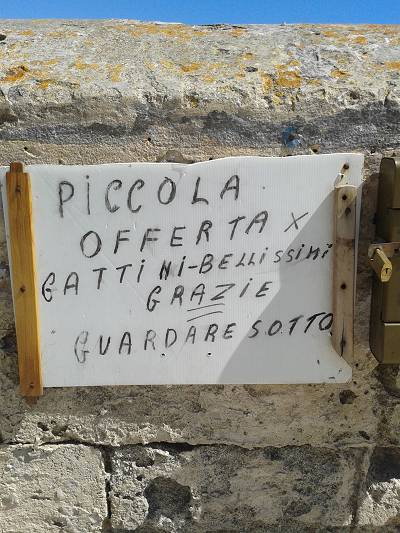 PICCOLA
OFFERTA X
GATTINI-BELLISSIMI
GRAZIE
GUARDARE SOTTO